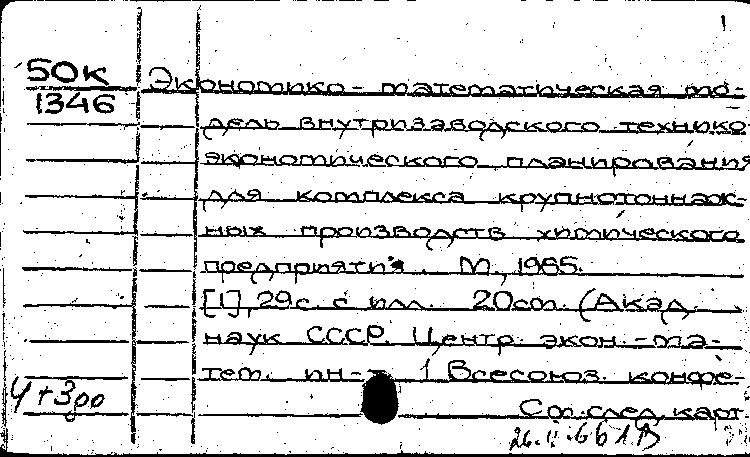 1
50к Экономико-математическая мо-
1346
дель внутризаводского технико
экономического планирования
для комплекса крупнотоннаж-
ных производств химического
предприятия. М., 1965.
[1], 29с. с илл. 20см. (Акад.
наук СССР. Центр. экон.-ма-
тем. ин-т 1 Всесоюз. конфе-
Ч+Зро
См.след.карт.